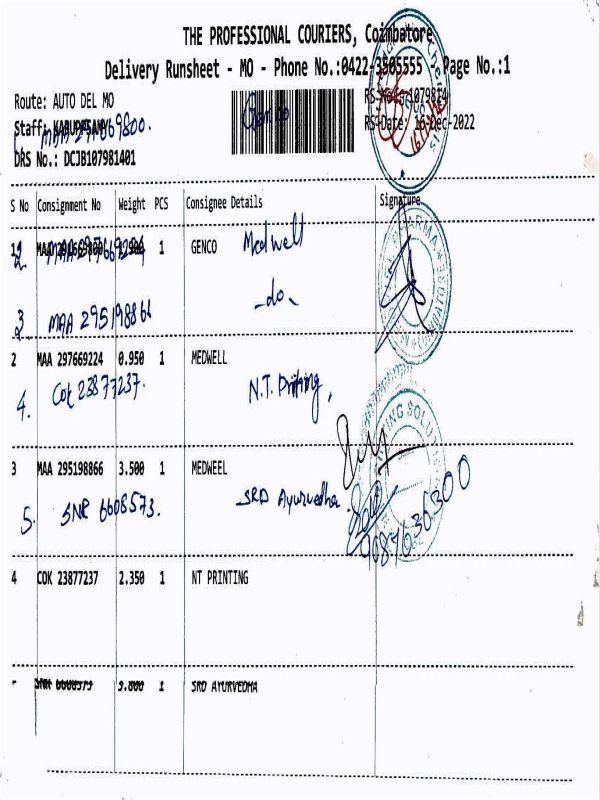 THE PROFESSIONAL COURIERS, Coimbatore
Delivery Runsheet - MO - Phone No.:0422-3505555 - Page No.:1
Route: AUTO DEL MO
Staff: KARUPPASAMY
RS-Date: 16-Dec-2022
DRS No.: DCJB107981401
Genco
S No Consignment No Weight PCS Consignee Details Signature
1 MAA 1 GENCO
2. Medwell
3 MAA 295198866 -do-
2 MAA 297669224 0.950 1 MEDWELL
4. Cok 23877237. N.T. Printing,
3 MAA 295198866 3.500 1 MEDWEEL
5. SNR 6608573. SRD Ayurvedha.
9687636300
4 COK 23877237 2.350 1 NT PRINTING
SNR 1 SRD AYURVEDHA